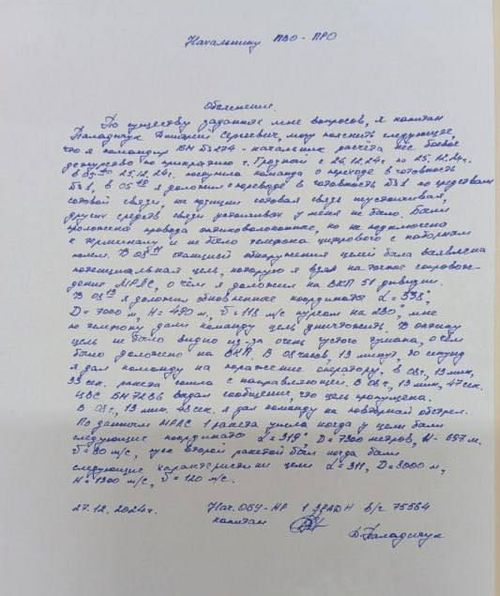 Начальнику ПВО-ПРО
Объяснение.
По существу заданных мне вопросов, я капитан
Паладичук Дмитрий Сергеевич, могу пояснить следующее,
что я командир БМ БЗ 274 - начальник расчёта нёс боевое
дежурство по прикрытию г. Грозный с 24.12.24г. по 25.12.24г.
в 05:40 25.12.24г. поступила команда о переходе в готовность
№1, в 05 я доложил о переводе в готовность №1 по средствам
сотовой связи, на позиции сотовая связь неустойчивая,
других средств связи устойчивых у меня не было. Были
проложены провода оптиковолоконные, но не подключены
к терминалам и не было телефона цифрового с наборным
полем. В 08 станцией обнаружения целей была выявлена
потенциальная цель, которую я взял на точное сопровож-
дение МРЛС, о чём я доложил на ВКП 51 дивизии.
В 08 я доложил обновленные координаты L = 338°,
D = 7000 м, H = 480 м, V = 118 м/с курсом на 280, мне
по телефону дали команду цель уничтожить. В оптику
цель не было видно из-за очень густого тумана, о чём
было доложено на ВКП. В 08 часов, 13 минут, 30 секунд
я дал команду на поражение оператору. в 08ч, 13 мин,
33 сек. ракета сошла с направляющей. В 08ч, 13 мин, 47 сек.
ЦВС БМ 72В6 выдал сообщение, что цель пропущена.
В 08ч, 13 мин. 48 сек. я дал команду на повторный обстрел.
По данным МРЛС 1 ракета ушла когда у цели были
следующие координаты L = 319°, D = 7300 метров, H - 697 м.
V = 80 м/с, пуск второй ракетой был когда были
следующие характеристики цели L = 311, D = 8000 м,
H = 1300 м/с, V = 120 м/с.
27.12.2024г. Нач. ОБУ-НР 1 ЗРАДН в/ч 75564
капитан Д. Паладичук